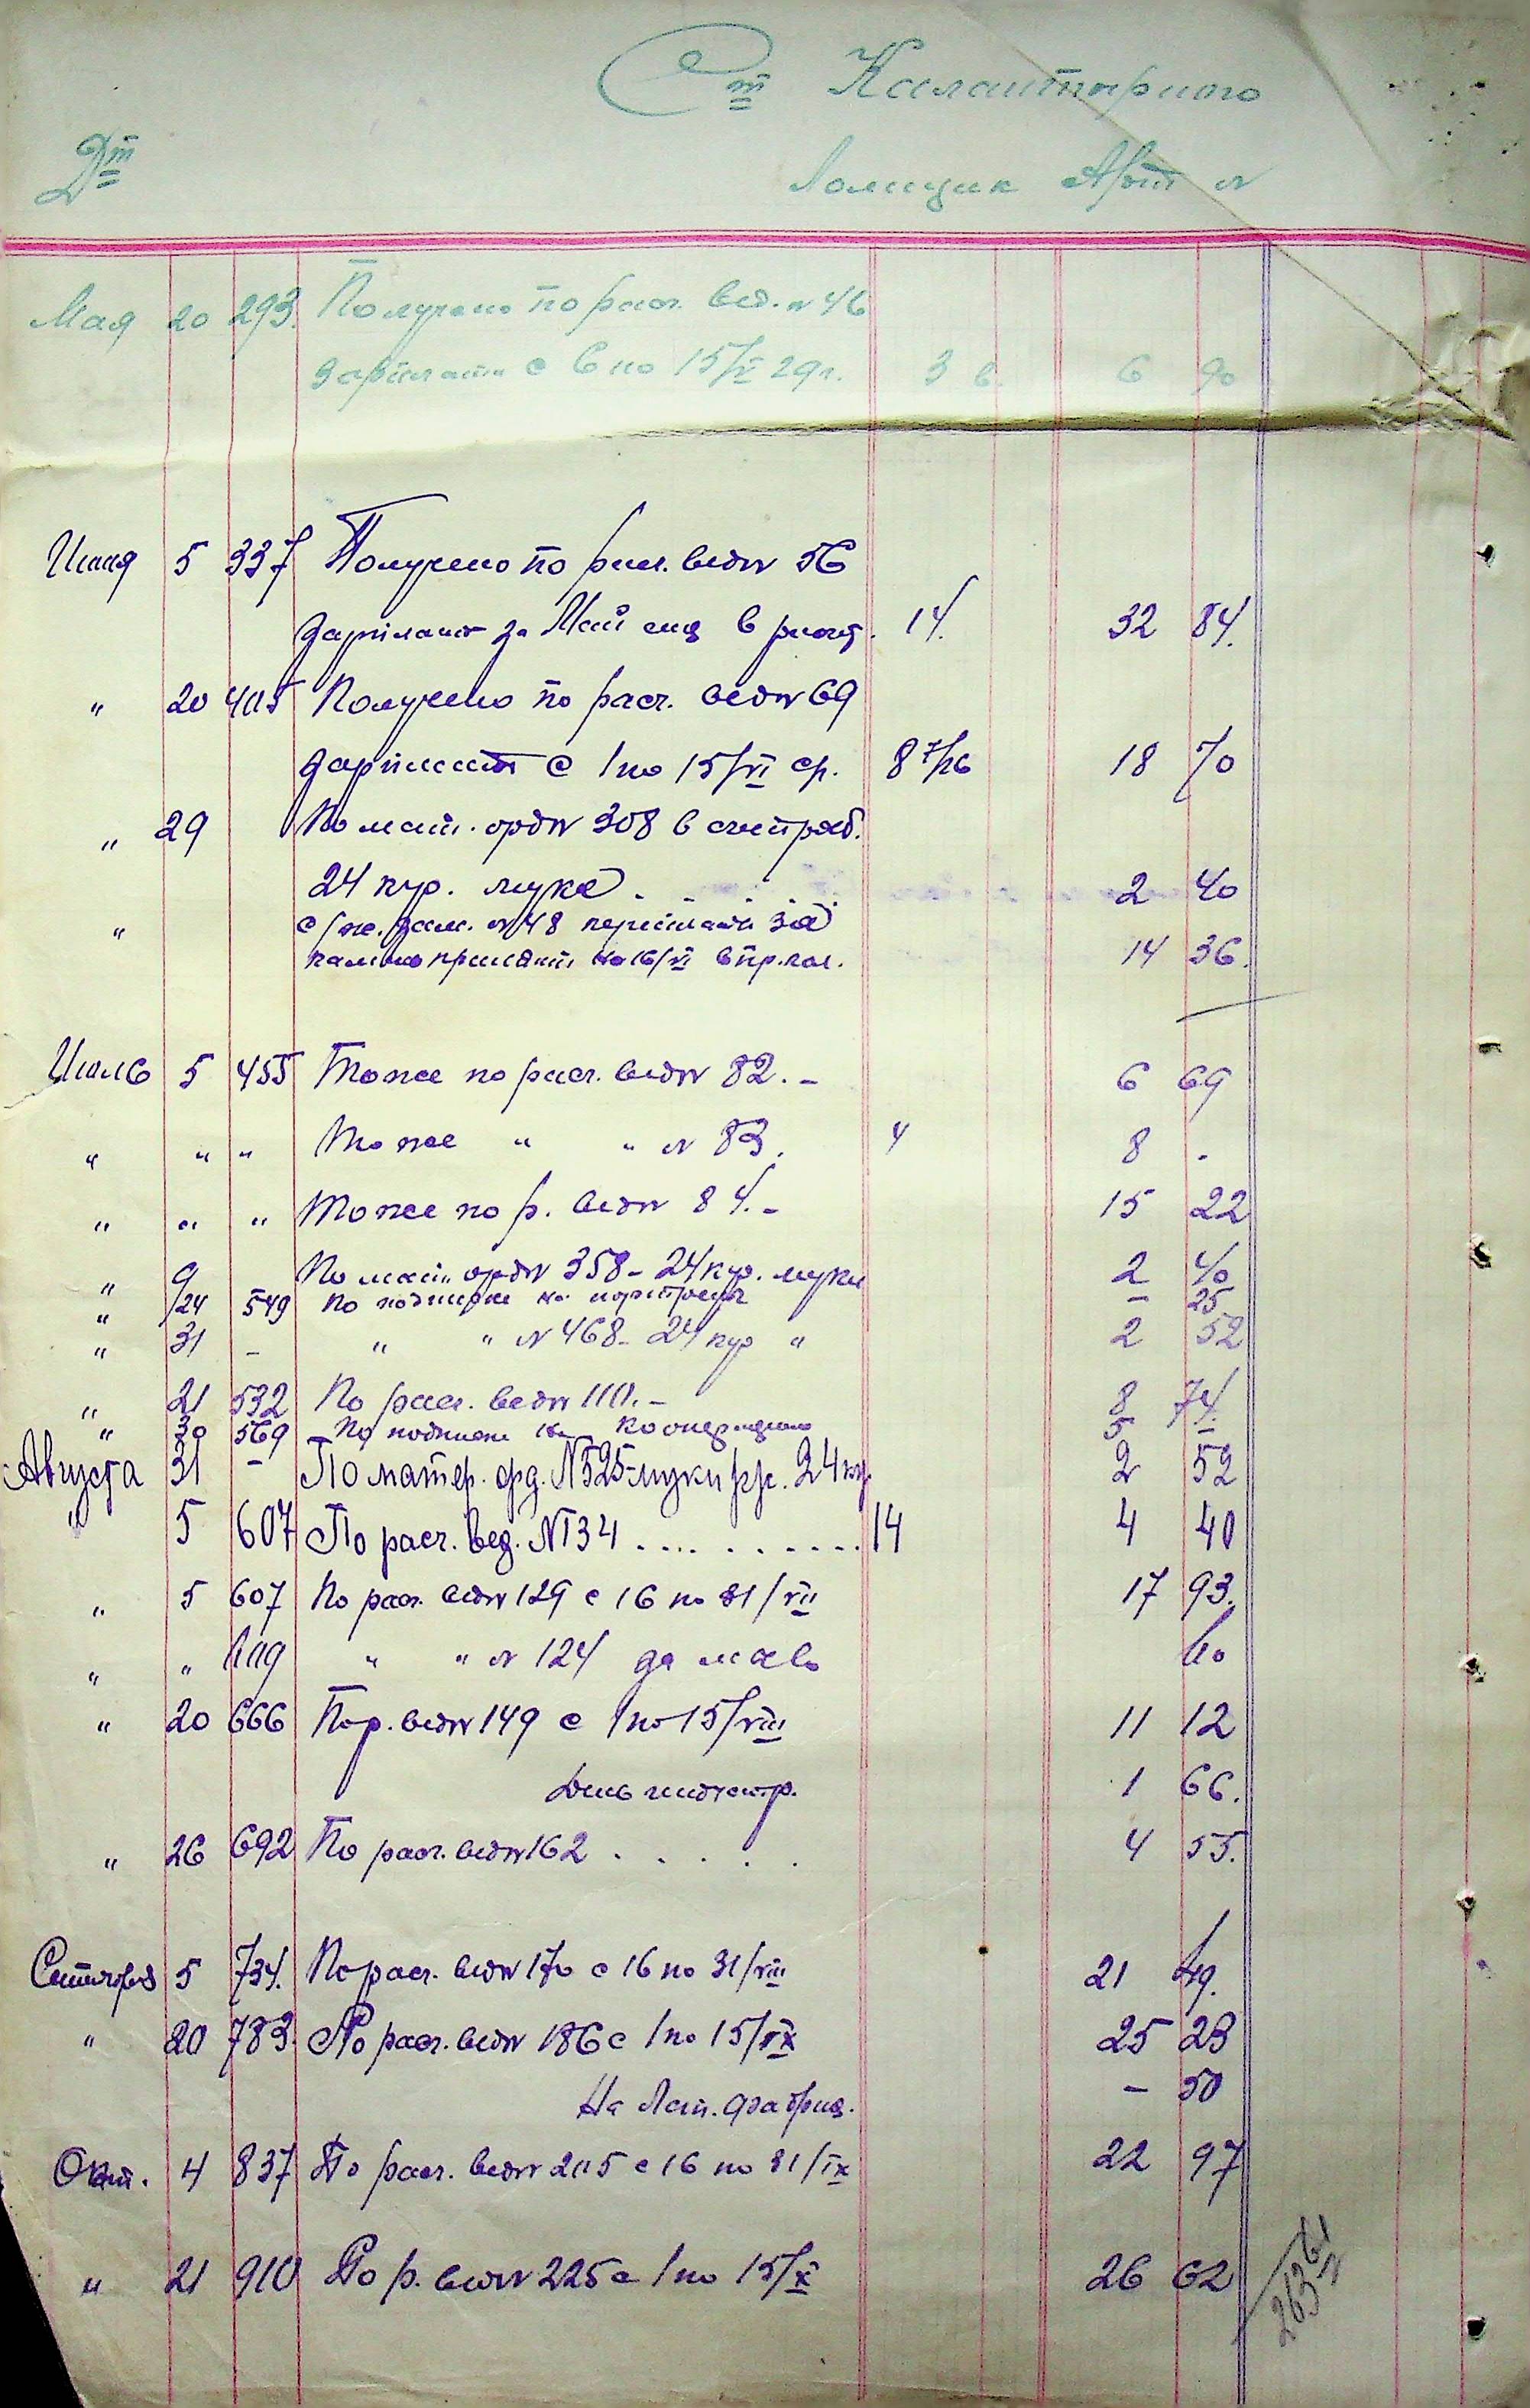 Ст
Дт
Ломщик
Мая 20 293. Получено по расч. вед. № 46
зарплата с 6 по 15/V 29 г. 3 6 90
Июня 5 337 Получено по расч. вед № 56
зарплата за Май 14. 32 84.
" 20 405 Получено по расч. вед № 69
зарплата с 1 по 15/VI ср. 8 7/16 18 70
" 29 По мат. орд № 308 в
24 кгр. муки . . . . . 2 40
" зам. № 48 за
на 16/VI 14 36.
Июль 5 455 Тоже по расч. вед № 82. – 6 69
" " " Тоже " " № 83. 4 8 -
" " " Тоже по р. вед № 84. – 15 22
" 9 По мат. орд № 358 – 24 кгр. муки 2 40
" 24 549 По подписке на – 25
" 31 – " " № 468 – 24 кгр " 2 52
" 21 532 По расч. вед № 110. – 8 74.
" 30 569 По подписке на кооперацию 5 –
Августа 31 – По матер. орд. № 525 муки рж. 24 кг 2 52
" 5 607 По расч. вед. № 134 . . . . . . . . . . 14 4 40
" 5 607 По расч. вед № 129 с 16 по 31/VII 17 93.
" " " " № 124 60
" 20 666 По р. вед № 149 с 1 по 15/VIII 11 12
День индустр. 1 66.
" 26 692 По расч. вед № 162 . . . . . 4 55.
Сентября 5 734. По расч. вед № 170 с 16 по 31/VIII 21 49.
" 20 783. По расч. вед № 186 с 1 по 15/IX 25 23
На – 50
Окт. 4 837 По расч. вед № 205 с 16 по 31/IX 22 97
" 21 910 По р. вед № 225 с 1 по 15/X 26 62
263